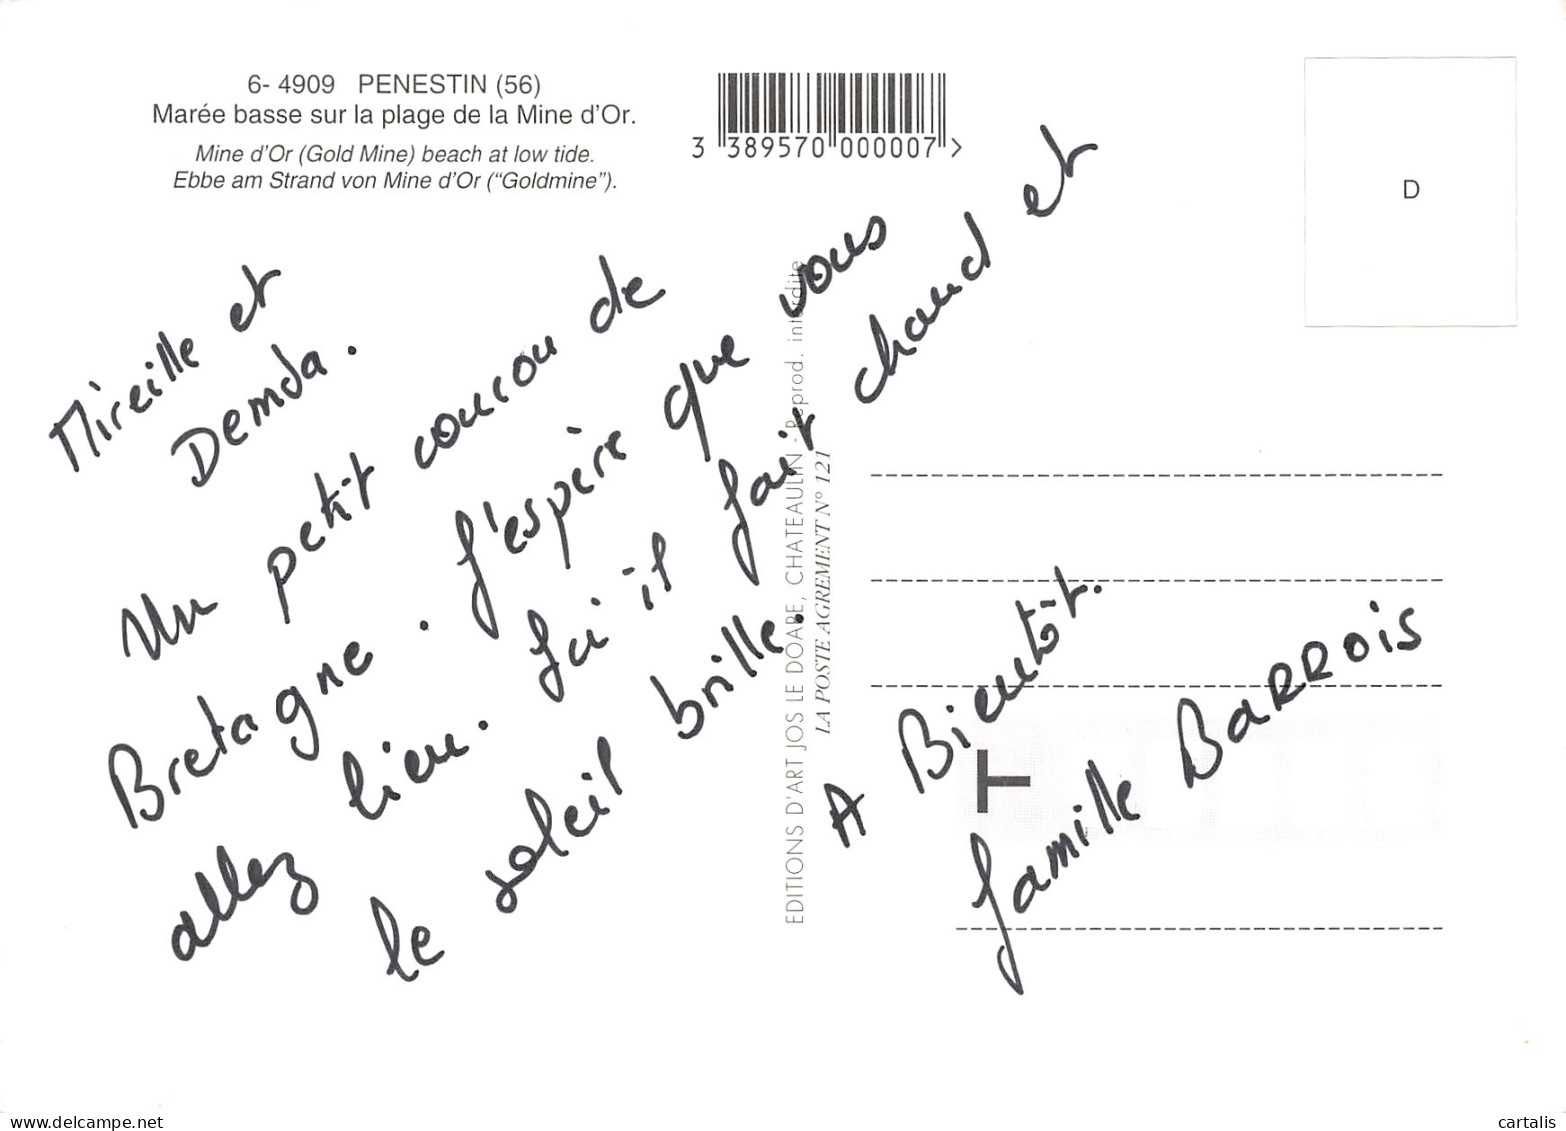 6- 4909 PENESTIN (56)
Marée basse sur la plage de la Mine d'Or.
Mine d'Or (Gold Mine) beach at low tide.
Ebbe am Strand von Mine d'Or ("Goldmine").
3 389570 000007 >
D
Mireille et
Demda.
Un petit coucou de
Bretagne. J'espère que vous
allez bien. Ici il fait chaud et
le soleil brille.
A Bientôt.
famille BARROIS
EDITIONS D'ART JOS LE DOARE, CHATEAULIN - Reprod. interdite
LA POSTE AGREMENT N° 121
T
delcampe.net
cartalis